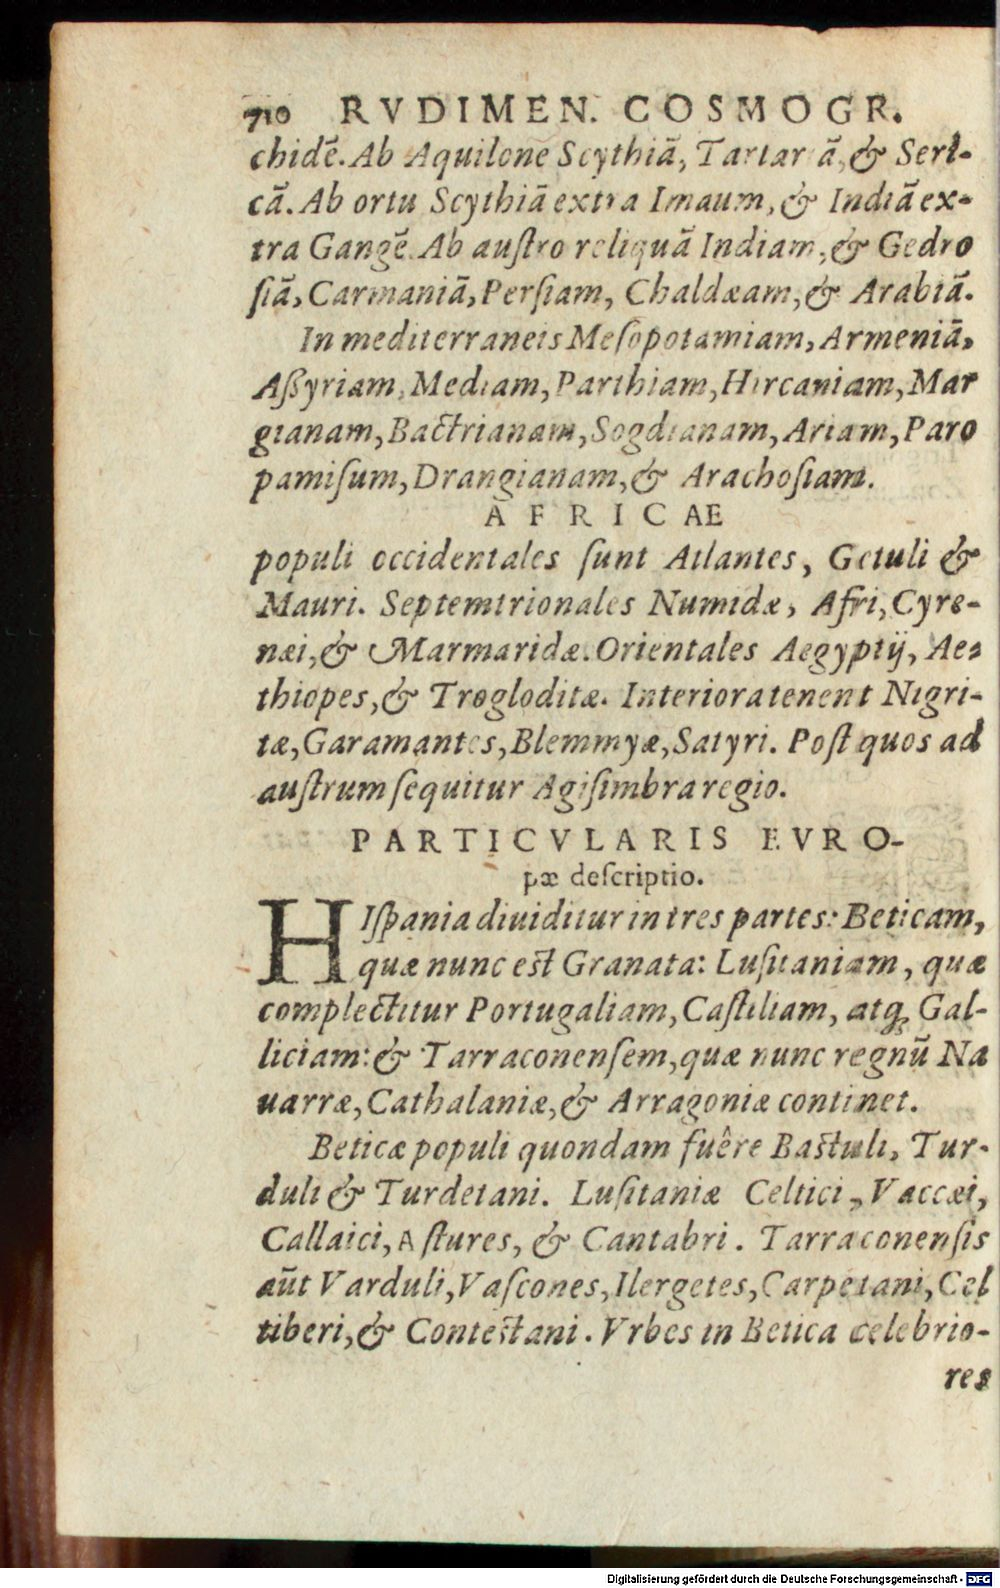 710 RVDIMEN. COSMOGR.
chidē. Ab Aquilone Scythiā, Tartar ā, & Seri-
cā. Ab ortu Scythiā extra Imaum, & Indiā ex-
tra Gangē. Ab auſtro reliquā Indiam, & Gedro
ſiā, Carmaniā, Perſiam, Chaldæam, & Arabiā.
In mediterraneis Meſopotamiam, Armeniā,
Aßyriam, Mediam, Parthiam, Hircaniam, Mar
gianam, Bactrianam, Sogdianam, Ariam, Paro
pamiſum, Drangianam, & Arachoſiam.
AFRICAE
populi occidentales ſunt Atlantes, Getuli &
Mauri. Septemtrionales Numidæ, Afri, Cyre-
næi, & Marmaridæ. Orientales Aegyptij, Ae-
thiopes, & Trogloditæ. Interiora tenent Nigri-
tæ, Garamantes, Blemmyæ, Satyri. Poſt quos ad
auſtrum ſequitur Agiſimbra regio.
PARTICVLARIS EVRO-
pæ deſcriptio.
HIſpania diuiditur in tres partes: Beticam,
quæ nunc eſt Granata: Luſitaniam, quæ
complectitur Portugaliam, Caſtiliam, atq; Gal-
liciam: & Tarraconenſem, quæ nunc regnū Na
uarræ, Cathalaniæ, & Arragoniæ continet.
Beticæ populi quondam fuêre Baſtuli, Tur-
duli & Turdetani. Luſitaniæ Celtici, Vaccæi,
Callaici, Aſtures, & Cantabri. Tarraconenſis
aūt Varduli, Vaſcones, Ilergetes, Carpetani, Cel
tiberi, & Conteſtani. Vrbes in Betica celebrio-
res
Digitalisierung gefördert durch die Deutsche Forschungsgemeinschaft - DFG